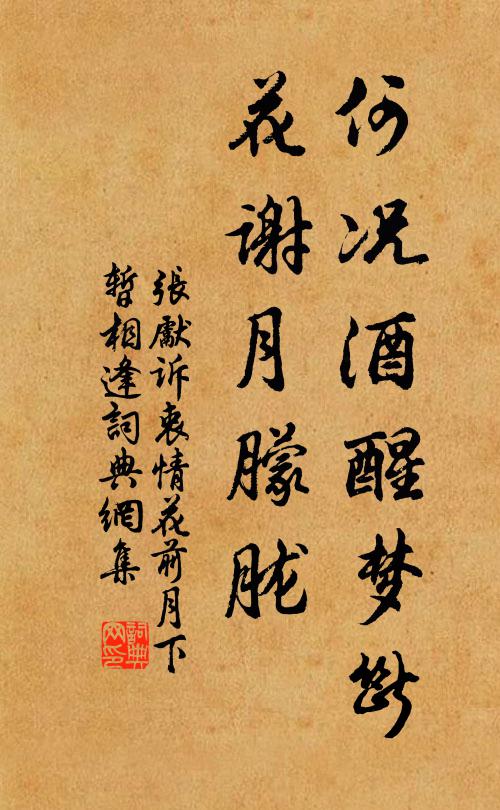 何况酒醒梦断
花谢月朦胧
張獻訴衷情花前月下
暫相逢詞典網集
詞典
网印